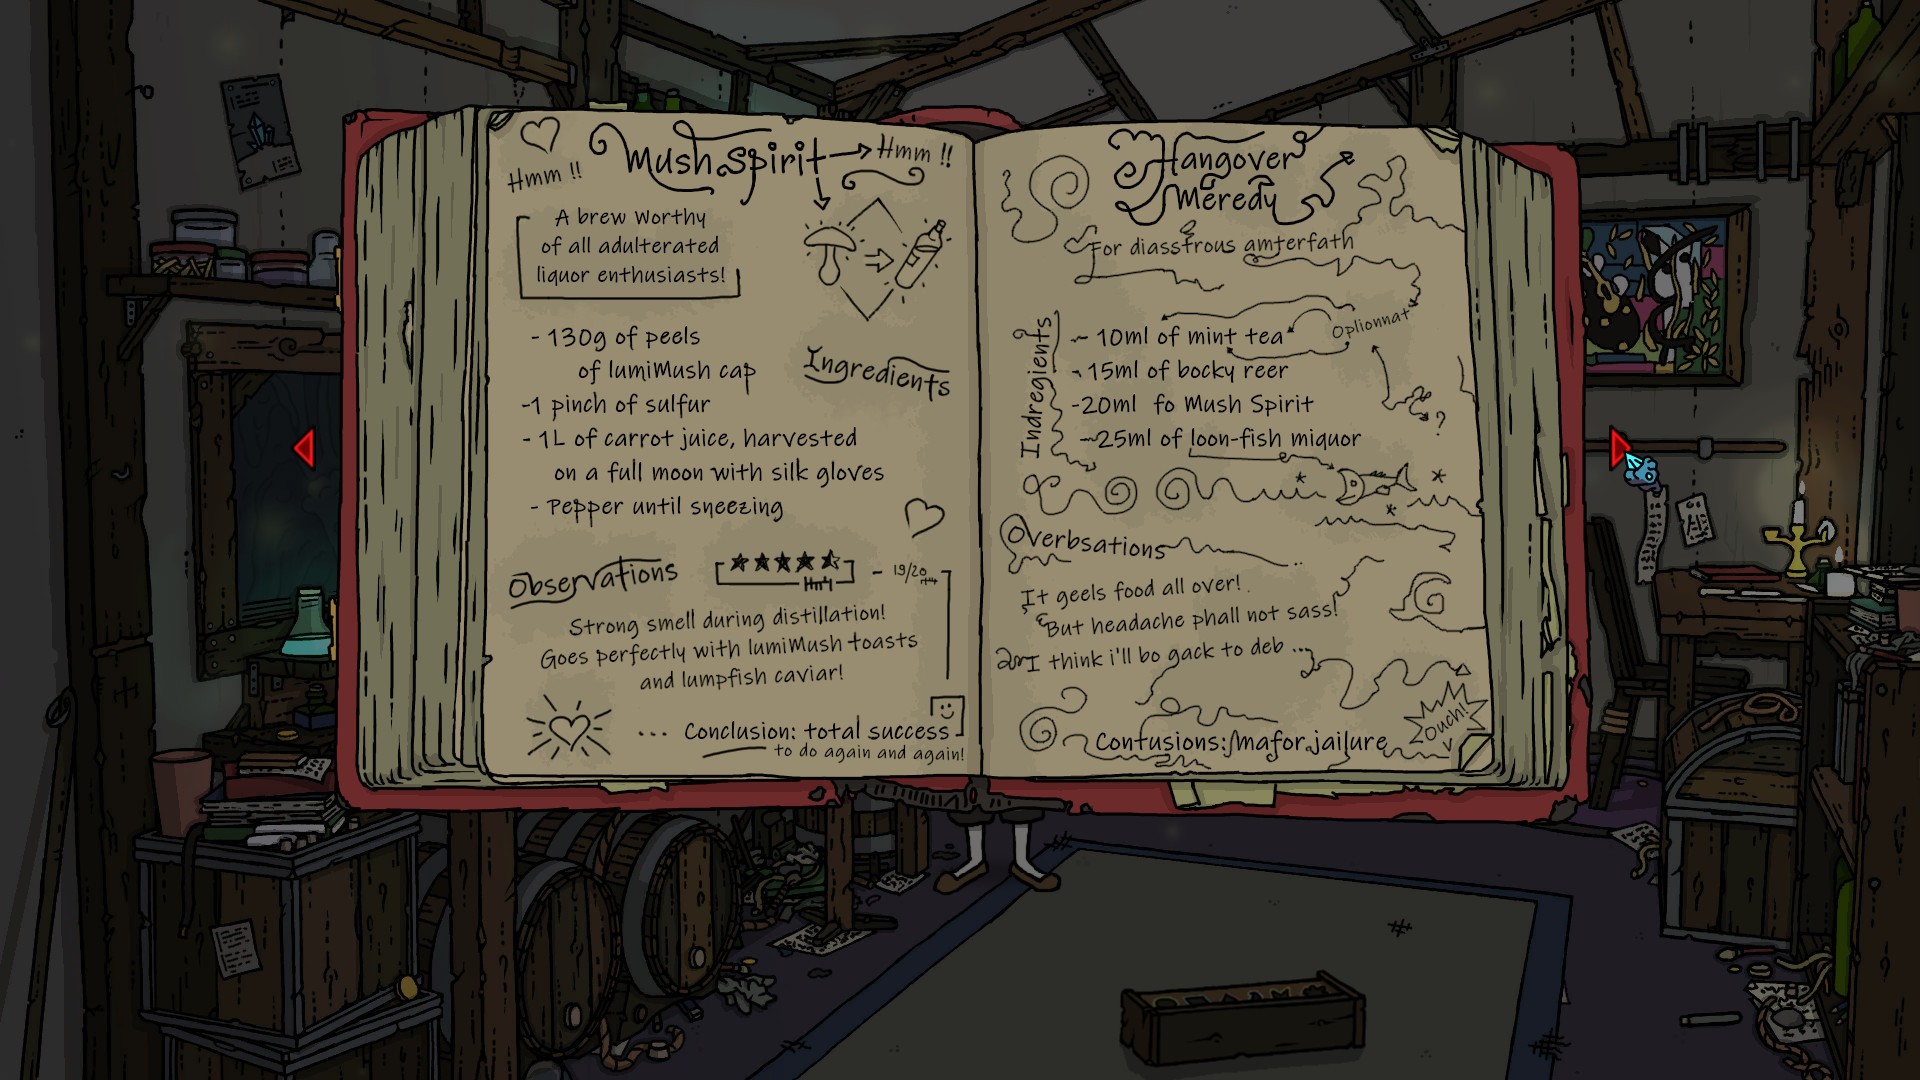 Hmm !!
Mush Spirit
Hmm !!
A brew worthy
of all adulterated
liquor enthusiasts!
- 130g of peels
of lumiMush cap
Ingredients
-1 pinch of sulfur
- 1L of carrot juice, harvested
on a full moon with silk gloves
- Pepper until sneezing
Observations
- 19/20
Strong smell during distillation!
Goes perfectly with lumiMush toasts
and lumpfish caviar!
... Conclusion: total success
to do again and again!
Hangover
Meredy
For diasstrous amterfath
Indregients
- 10ml of mint tea
Oplionnat
- 15ml of bocky reer
-20ml fo Mush Spirit
?
-25ml of loon-fish miquor
Overbsations
It geels food all over!
But headache phall not sass!
I think i'll bo gack to deb ...
Ouch!
Confusions: mafor jailure